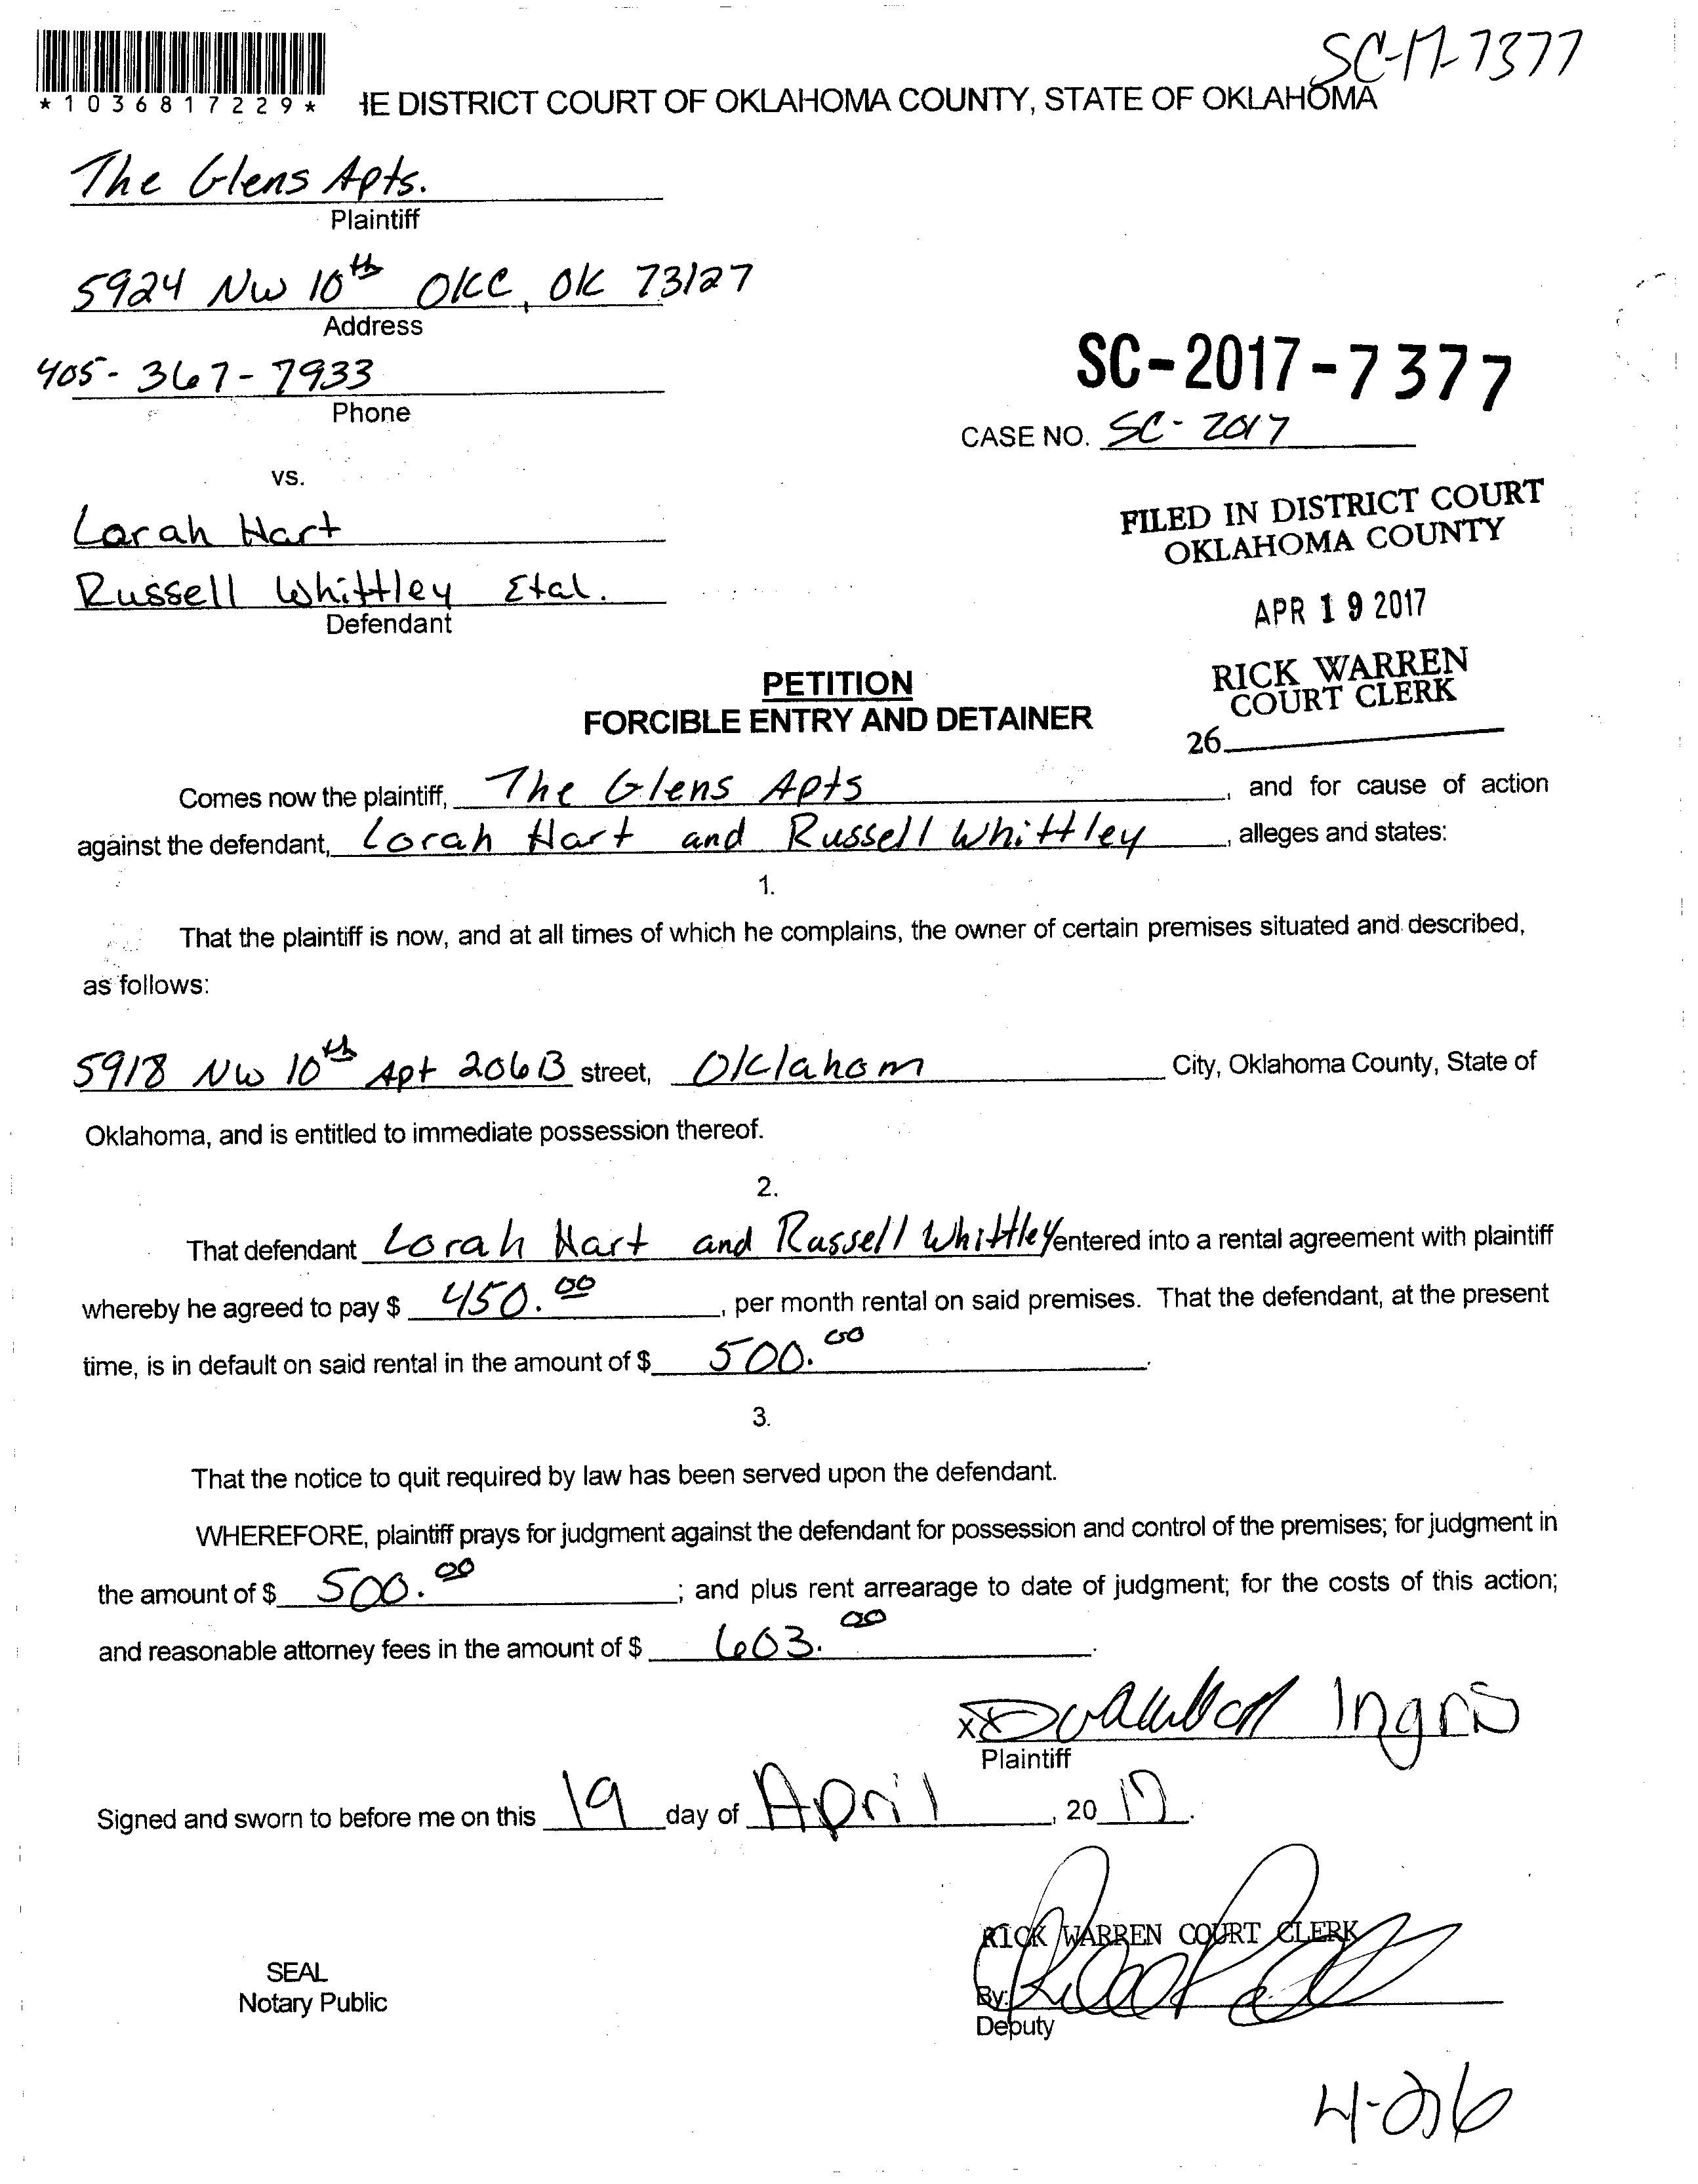 SC-17-7377
*1036817229* HE DISTRICT COURT OF OKLAHOMA COUNTY, STATE OF OKLAHOMA
The Glens Apts.
Plaintiff
5924 NW 10th OKC, OK 73127
Address
405-367-7933
Phone
SC-2017-7377
CASE NO. SC-2017
vs.
FILED IN DISTRICT COURT
OKLAHOMA COUNTY
Lorah Hart
Russell Whittley Etal.
Defendant
APR 19 2017
RICK WARREN
COURT CLERK
26
PETITION
FORCIBLE ENTRY AND DETAINER
Comes now the plaintiff, The Glens Apts, and for cause of action
against the defendant, Lorah Hart and Russell Whittley, alleges and states:
1.
That the plaintiff is now, and at all times of which he complains, the owner of certain premises situated and described,
as follows:
5918 NW 10th Apt 206B street, Oklahom City, Oklahoma County, State of
Oklahoma, and is entitled to immediate possession thereof.
2.
That defendant Lorah Hart and Russell Whittley entered into a rental agreement with plaintiff
whereby he agreed to pay $ 450.00, per month rental on said premises. That the defendant, at the present
time, is in default on said rental in the amount of $ 500.00.
3.
That the notice to quit required by law has been served upon the defendant.
WHEREFORE, plaintiff prays for judgment against the defendant for possession and control of the premises; for judgment in
the amount of $ 500.00; and plus rent arrearage to date of judgment; for the costs of this action;
and reasonable attorney fees in the amount of $ 603.00.
x Ingris
Plaintiff
Signed and sworn to before me on this 19 day of April, 2017.
RICK WARREN COURT CLERK
SEAL
Notary Public
By:
Deputy
4-26